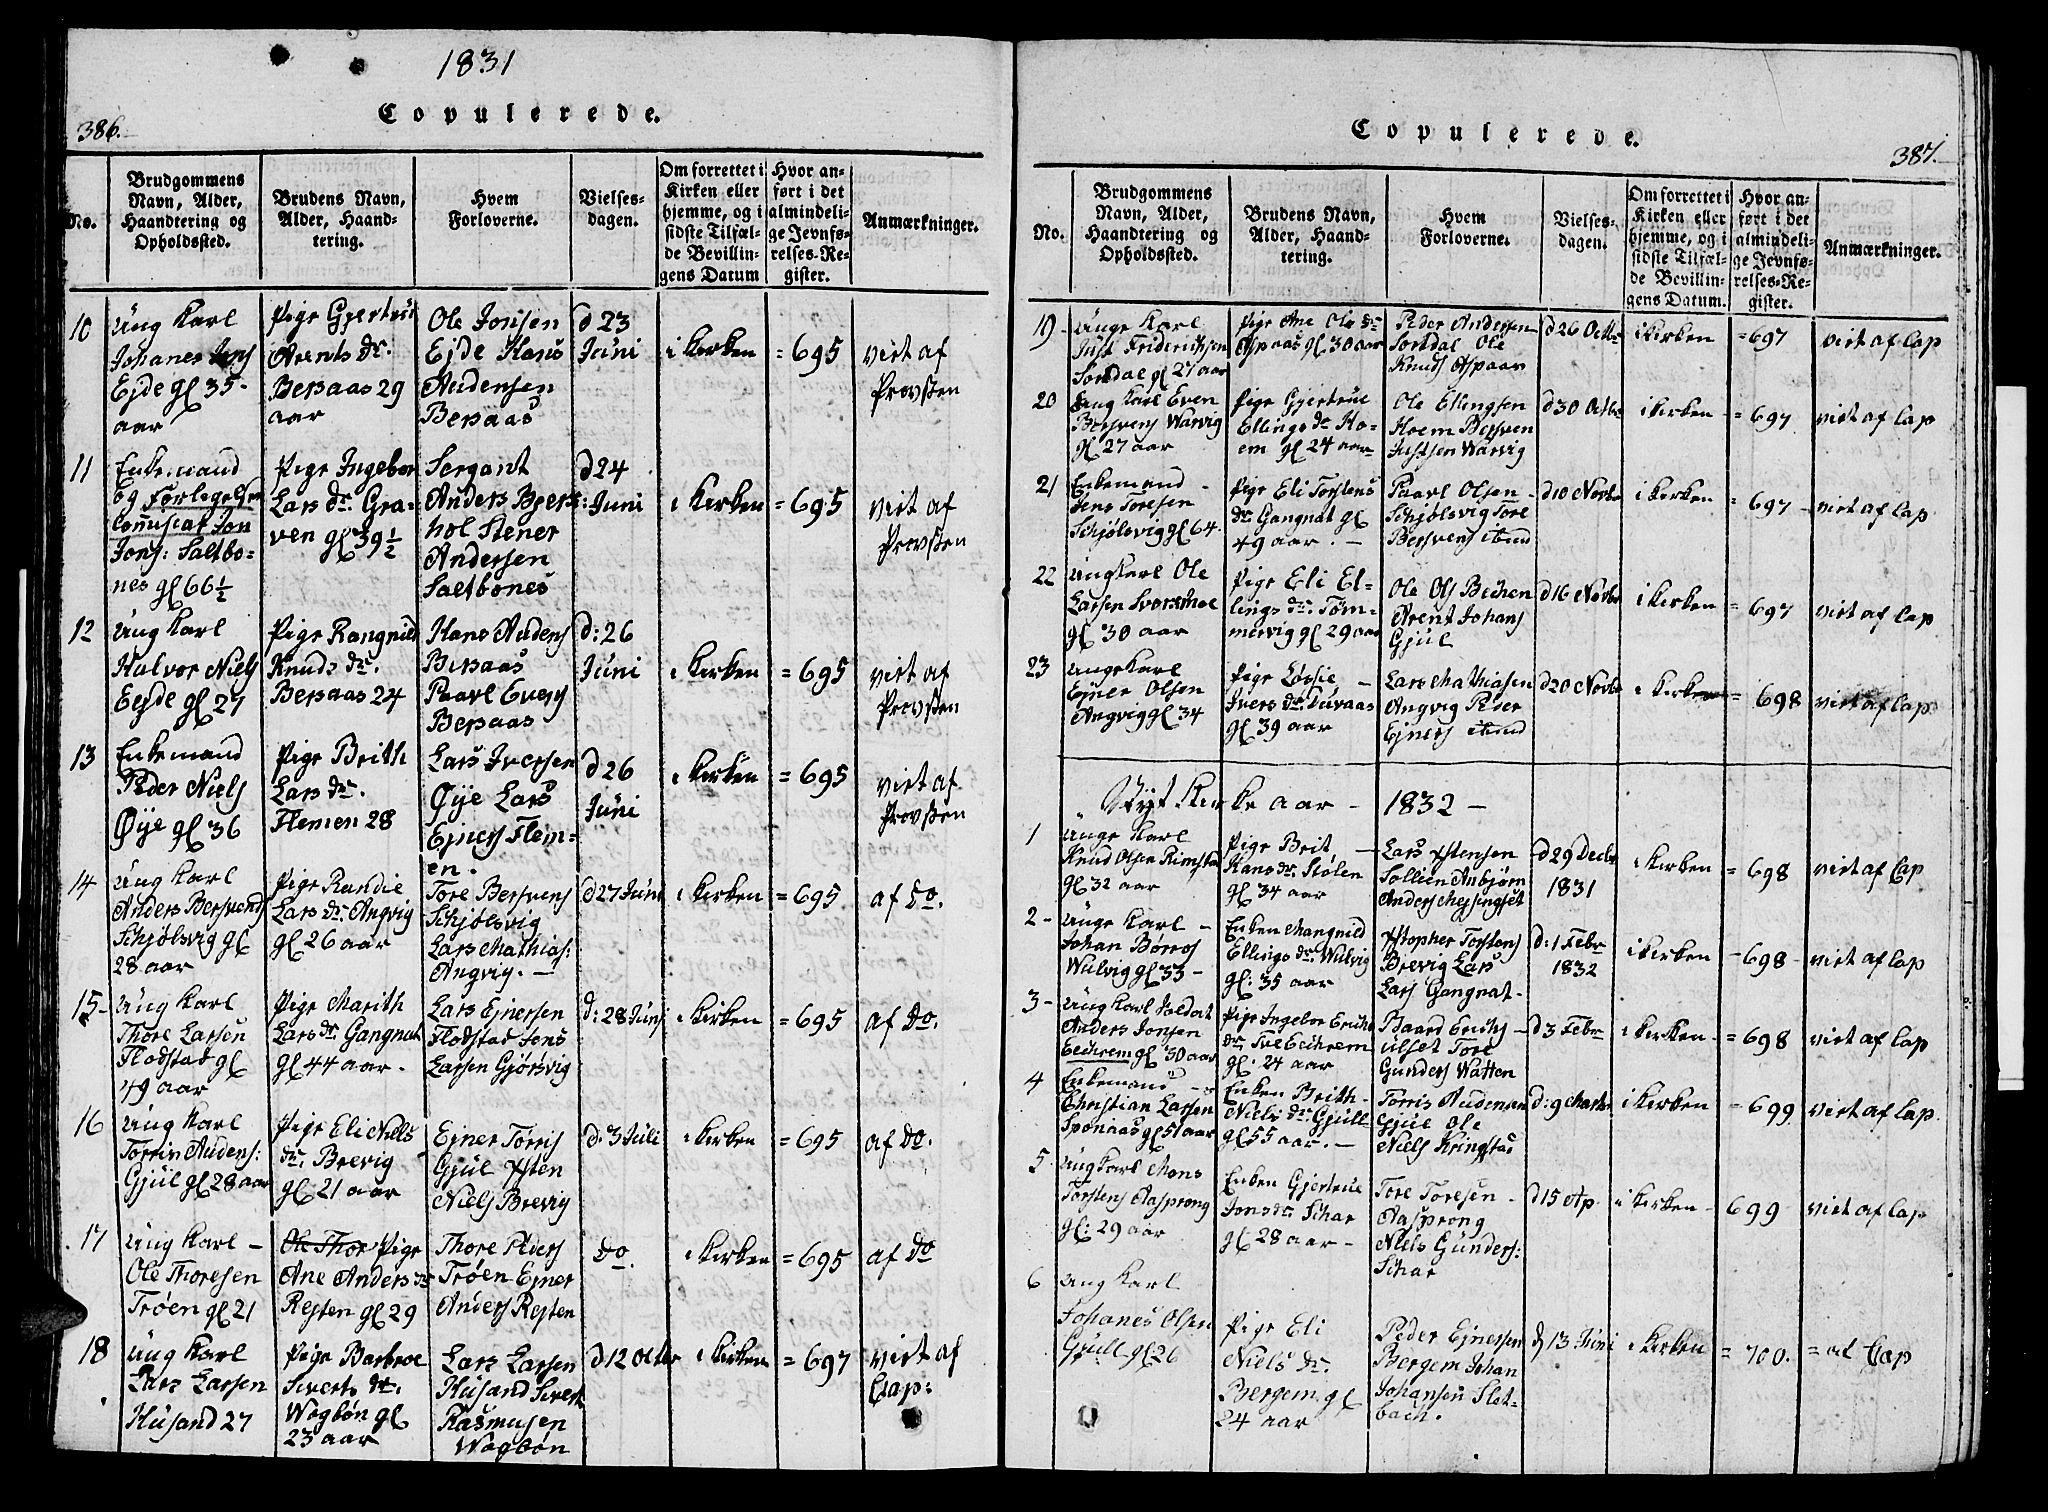 1831
386.
Copulerede.
No.
Brudgommens
Navn, Alder,
Haandtering og
Opholdssted.
Brudens Navn,
Alder, Haand-
tering.
Hvem
Forloverne.
Vielses-
dagen.
Om forrettet i
Kirken eller
hjemme, og i
sidste Tilfæl-
de Bevillin-
gens Datum
Hvor an-
ført i det
almindeli-
ge Jevnfø-
relses-Re-
gister.
Anmærkninger.
10
Ung Karl
Johanes Jons
Ejde gl 35-
aar
Pige Gjertrud
Arents dr.
Bersaas 29
aar
Ole Jonsen
Ejde Hans
Andensen
Bersaas
d 23
Juni
i Kirken
= 695
viet af
Provsten
11
Enkemand
og Forlegelse
Comiscar Jon
Jons: Saltbo-
nes gl 66½
Pige Ingebor
Lars dr. Gra-
ven gl 39½
Sergant
Anders Bjerk
hol Stener
Andersen
Saltbones
d 24
Juni
i Kirken
= 695
viet af
Provsten
12
Ung Karl
Halvor Niels
Ejde gl 27
Pige Rangnild
Knuds dr.
Bersaas 24
Hans Audens
Bersaas
Paavl Evers
Bersaas
d: 26
Juni
i Kirken
= 695
viet af
Provsten
13
Enkemand
Peder Niels
Øye gl 36
Pige Brith
Lars dr.
Flemen 28
Lars Iversen
Øije Lars
Ejners Flem-
en.
d 26
Juni
i Kirken
= 695
viet af
Provsten
14
Ung Karl
Anders Bersvends
Schjølsvig gl
28 aar
Pige Randie
Lars dr Angvig
gl 26 aar
Tore Bersvens
Schjølsvig
Lars Mathias:
Angvig. —
d 27 Juni
i Kirken
= 695
af do.
15-
Ung Karl
Thore Larsen
Flodstad gl
49 aar
Pige Marith
Lars dr Gangnat
gl 44 aar -
Lars Ejnersen
Flodstad Jons
Larsen Gjørsvig
d: 28 Juni
i Kirken
= 695
af do.
16
Ung Karl
Torris Audens:
Gjül gl 28 aar
Pige Eli Niels
dr. Brevig
gl 21 aar
Ejner Torris
Gjül Østen
Niels Brevig
d. 3 Juli
i Kirken
= 695
af do.
17
Ung Karl -
Ole Thoresen
Trøen gl 21
Ole Thor Pige
Ane Anders dr
Resten gl 29
Thore Peders
Trøen Ejner
Anders Resten
do.
i Kirken
= 695
af do
18
Ung Karl
Lars Larsen
Husand 27
Pige Barbroe
Siverts dr.
Wogbøn gl
23 aar
Lars Larsen
Husand Sivert
Rasmusen
Wogbøn
d 12 Octbr
i Kirken
= 697
viet af
Cap:
Copulerede.
387.
No.
Brudgommens
Navn, Alder,
Haandtering og
Opholdssted.
Brudens Navn,
Alder, Haand-
tering.
Hvem
Forloverne.
Vielses-
dagen.
Om forrettet i
Kirken eller
hjemme, og i
sidste Tilfæl-
de Bevillin-
gens Datum.
Hvor an-
ført i det
almindeli-
ge Jevnfø-
relses-Re-
gister.
Anmærkninger.
19-
Unge Karl
Just Fridericksen
Sordal gl 27 aar
Pige Ane Ole dr
Ospaas gl 30 aar
Peder Andersen
Sordal Ole
Knuds Ospaas
d 26 Octbr
i Kirken
= 697
viet af Cap
20
Ung Karl Even
Bersvens Warvig
gl 27 aar
Pige Gjertrue
Ellings dr Ho-
em gl 24 aar
Ole Ellingsen
Hoem Bersven
Justsen Warvig
d 30 Octbr
i Kirken
= 697
viet af Cap
21
Enkemand -
Jens Toresen
Schjølsvig gl 64.
Pige Eli Torstens
dr. Gangnat gl
49 aar. -
Paavl Olsen -
Schjølsvig Tore
Bersvens ibind
d 10 Novbr
i Kirken
= 697
viet af Cap
22
Ung Karl Ole
Larsen
gl 30 aar
Pige Eli El-
lings dr. Tøm-
mervig gl 29 aar
Ole Ols Bechen
Arent Johans
Gjül
d 16 Novbr
i Kirken
= 697
viet af Cap
23
Unge Karl
Ejner Olsen
Angvig gl 34
Pige Lossie -
Ivers dr. Tuvaas
gl 39 aar
Lars Mathiasen
Angvig Peder
Ejners ibind
d 20 Novbr
i Kirken
= 698
viet af Cap
Nyt Kirke aar - 1832 -
1
Unge Karl
Knud Olsen Rimstad
gl 32 aar
Pige Brit -
Hans dr. Stølen
gl 34 aar
Lars Østensen
Sollien Anbjørn
Anders Mejsingset
d 29 Decbr
1831
i Kirken
= 698
viet af Cap
2-
Unge Karl -
Johan Børros
Wulvig gl 33 -
Enken Mangnild
Ellings dr. Wulvig
gl: 35 aar
Xstopher Torstens
Brevig Lars
Lars Gangnat-
d: 1 Febr
1832
i Kirken
- 698 -
viet af Cap
3-
Ung Karl Soldat
Anders Jonsen
Eechrem gl 30 aar
Pige Ingebor Erichs
dr Tve Eechrem
gl: 24 aar
Baard Erichs -
Ulset Tore
Gunders Watten
d 3 Febr
i Kirken -
= 698
viet af Cap
4
Enkemand -
Christian Larsen
Sponaas gl 51 aar
Enken Brith-
Niels dr Gjüll
gl 55 aar. —
Torris Audensen
Gjül Ole
Niels Kringstad
d: 9 Marts
i Kirken
= 699
viet af Cap.
5
Ung Karl Mons
Torstens Aasprong
gl: 29 aar
Enken Gjertrue
Jons dr. Schar
gl 28 aar -
Tore Toresen -
Aasprong
Niels Gunders:
Schar
d 15 Ap
i Kirken -
699
viet af Cap
6
Ung Karl
Johanes Olsen
Gjüll gl 26
Pige Eli
Niels dr.
Bergem gl
24 aar
Peder Ejnersen
Bergem Johan
Johansen Slet-
bach.
d 13 Juni
i Kirken
= 700.
= af Cap